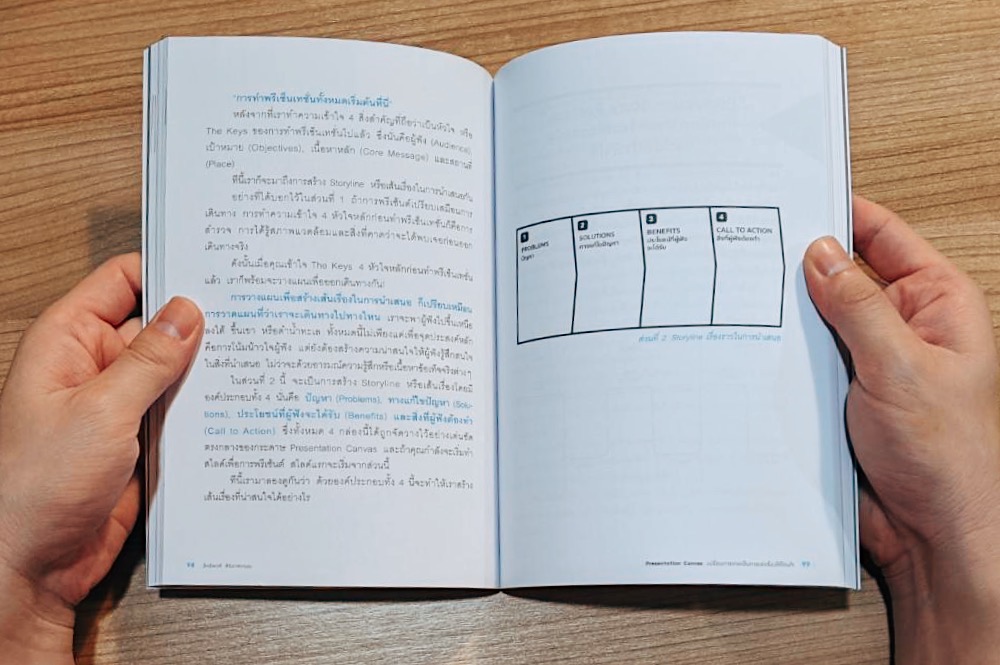 "การทำพรีเซ็นเทชั่นทั้งหมดเริ่มต้นที่นี่"
หลังจากที่เราทำความเข้าใจ 4 สิ่งสำคัญที่ถือว่าเป็นหัวใจ หรือ
The Keys ของการทำพรีเซ็นเทชั่นไปแล้ว ซึ่งนั่นคือผู้ฟัง (Audience),
เป้าหมาย (Objectives), เนื้อหาหลัก (Core Message) และสถานที่
(Place)
ทีนี้เราก็จะมาถึงการสร้าง Storyline หรือเส้นเรื่องในการนำเสนอกัน
อย่างที่ได้บอกไว้ในส่วนที่ 1 ถ้าการพรีเซ้นต์เปรียบเสมือนการ
เดินทาง การทำความเข้าใจ 4 หัวใจหลักก่อนทำพรีเซ้นเทชั่นก็คือการ
สำรวจ การได้รู้สภาพแวดล้อมและสิ่งที่คาดว่าจะได้พบเจอก่อนออก
เดินทางจริง
ดังนั้นเมื่อคุณเข้าใจ The Keys 4 หัวใจหลักก่อนทำพรีเซ้นเทชั่น
แล้ว เราก็พร้อมจะวางแผนเพื่อออกเดินทางกัน!
การวางแผนเพื่อสร้างเส้นเรื่องในการนำเสนอ ก็เปรียบเหมือน
การวาดแผนที่ว่าเราจะเดินทางไปทางไหน เราจะพาผู้ฟังไปขึ้นเหนือ
ลงใต้ ขึ้นเขา หรือดำน้ำทะเล ทั้งหมดนี้ไม่เพียงแต่เพื่อจุดประสงค์หลัก
คือการโน้มน้าวใจผู้ฟัง แต่ยังต้องสร้างความน่าสนใจให้ผู้ฟังรู้สึกสนใจ
ในสิ่งที่นำเสนอ ไม่ว่าจะด้วยอารมณ์ความรู้สึกหรือเนื้อหาข้อเท็จจริงต่างๆ
ในส่วนที่ 2 นี้ จะเป็นการสร้าง Storyline หรือเส้นเรื่องโดยมี
องค์ประกอบทั้ง 4 นั่นคือ ปัญหา (Problems), ทางแก้ไขปัญหา (Solu-
tions), ประโยชน์ที่ผู้ฟังจะได้รับ (Benefits) และสิ่งที่ผู้ฟังต้องทำ
(Call to Action) ซึ่งทั้งหมด 4 กล่องนี้ได้ถูกจัดวางไว้อย่างเด่นชัด
ตรงกลางของกระดาษ Presentation Canvas และถ้าคุณกำลังจะเริ่มทำ
สไลด์เพื่อการพรีเซ้นต์ สไลด์แรกจะเริ่มจากส่วนนี้
ทีนี้เรามาลองดูกันว่า ด้วยองค์ประกอบทั้ง 4 นี้จะทำให้เราสร้าง
เส้นเรื่องที่น่าสนใจได้อย่างไร
98
1 PROBLEMS
ปัญหา
2 SOLUTIONS
ทางแก้ไขปัญหา
3 BENEFITS
ประโยชน์ที่ผู้ฟัง
จะได้รับ
4 CALL TO ACTION
สิ่งที่ผู้ฟังต้องทำ
ส่วนที่ 2 Storyline เรื่องราวในการนำเสนอ
Presentation Canvas 99